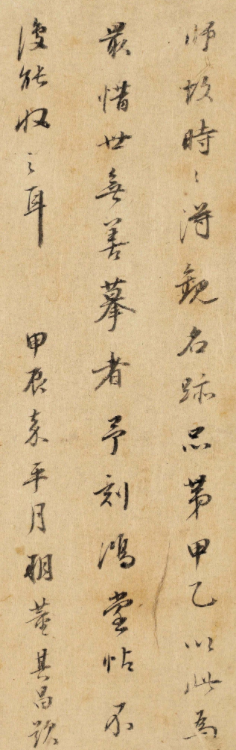 師故時〻得觀名跡品第甲乙以此為
最惜世無善摹者予刻鴻堂帖不
復能收之耳 甲辰嘉平月朔董其昌題